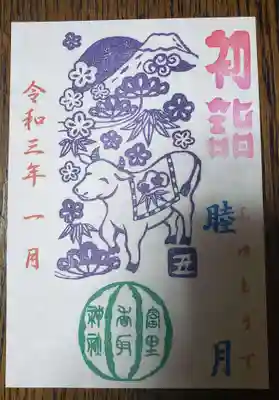 初詣
睦月
丑
富里
香取
神社
令和三年 一月